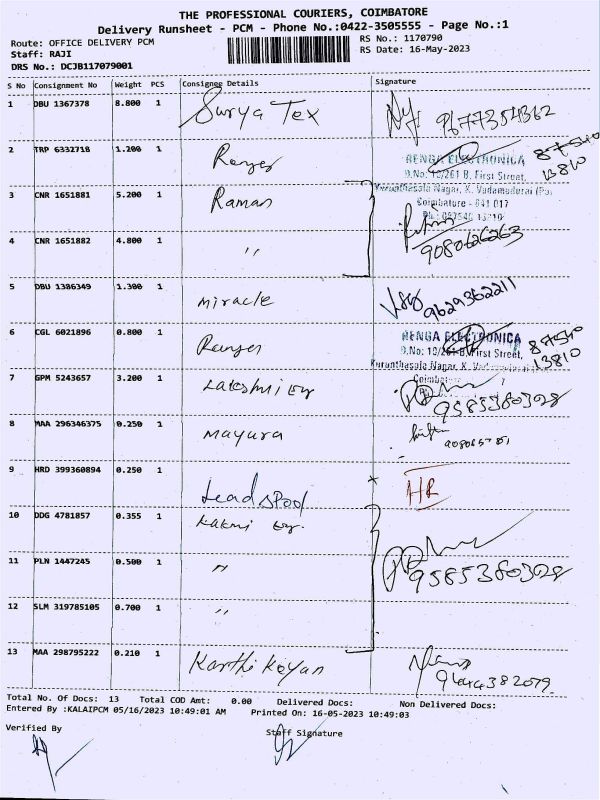 THE PROFESSIONAL COURIERS, COIMBATORE
Delivery Runsheet - PCM - Phone No.:0422-3505555 - Page No.:1
Route: OFFICE DELIVERY PCM
Staff: RAJI
DRS No.: DCJB117079001
RS No.: 1170790
RS Date: 16-May-2023
S No Consignment No Weight PCS Consignee Details Signature
1 DBU 1367378 8.800 1 Surya Tex 9677354362
2 TRP 6332718 1.200 1
RENGA ELECTRONICA 87540
D.No: 10/261 B, First Street, 13810
Kurunthasala Nagar, K. Vadamadurai (Po)
Coimbature - 641 017
3 CNR 1651881 5.200 1 Raman
4 CNR 1651882 4.800 1 " 9080626263
5 DBU 1386349 1.300 1 Miracle 9629362211
6 CGL 6021896 0.800 1
RENGA ELECTRONICA 87540
D.No: 10/261 B, First Street, 13810
Kurunthasala Nagar, K. Vadamadurai
7 GPM 5243657 3.200 1 Lakshmi Eng 9585380328
8 MAA 296346375 0.250 1 Mayura
9 HRD 399360894 0.250 1 Lead Spool x HR
10 DDG 4781857 0.355 1 Lakmi Eng.
11 PLN 1447245 0.500 1 " 9585380328
12 SLM 319785105 0.700 1 "
13 MAA 298795222 0.210 1 Karthikeyan 9444382079
Total No. Of Docs: 13 Total COD Amt: 0.00 Delivered Docs: Non Delivered Docs:
Entered By :KALAIPCM 05/16/2023 10:49:01 AM Printed On: 16-05-2023 10:49:03
Verified By Staff Signature